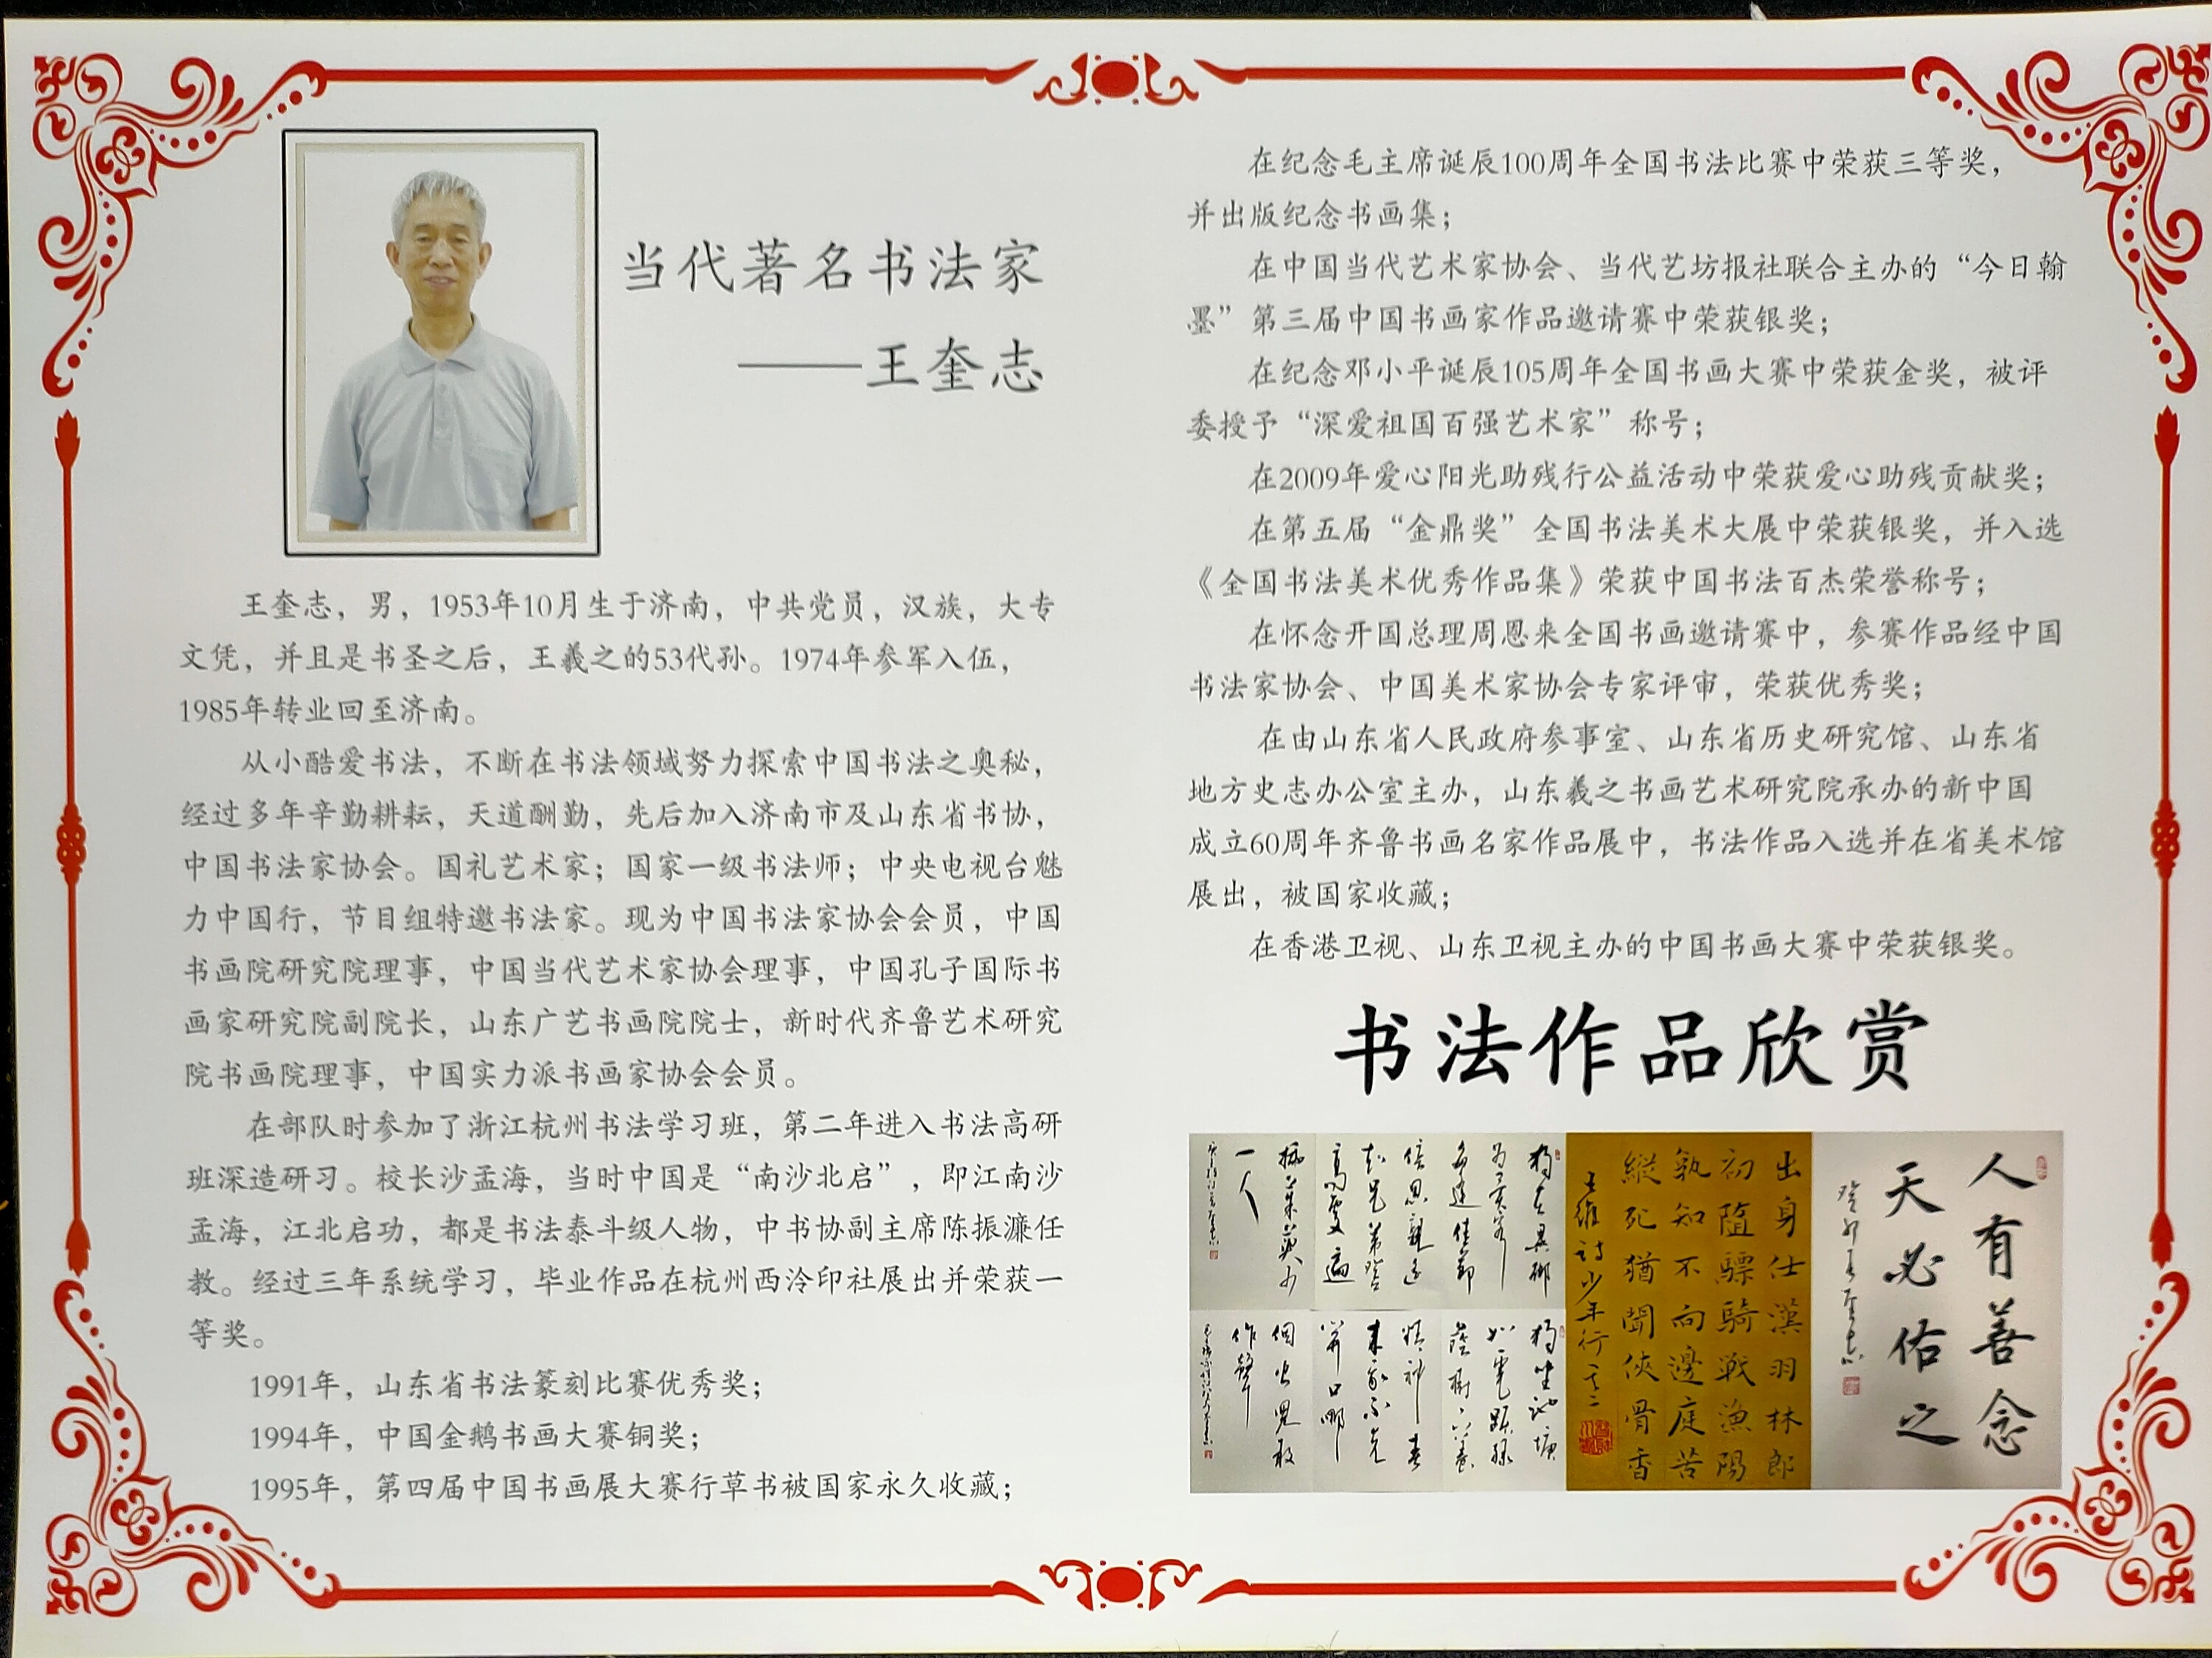 当代著名书法家
——王奎志
王奎志，男，1953年10月生于济南，中共党员，汉族，大专
文凭，并且是书圣之后，王羲之的53代孙。1974年参军入伍，
1985年转业回至济南。
从小酷爱书法，不断在书法领域努力探索中国书法之奥秘，
经过多年辛勤耕耘，天道酬勤，先后加入济南市及山东省书协，
中国书法家协会。国礼艺术家；国家一级书法师；中央电视台魅
力中国行，节目组特邀书法家。现为中国书法家协会会员，中国
书画院研究院理事，中国当代艺术家协会理事，中国孔子国际书
画家研究院副院长，山东广艺书画院院士，新时代齐鲁艺术研究
院书画院理事，中国实力派书画家协会会员。
在部队时参加了浙江杭州书法学习班，第二年进入书法高研
班深造研习。校长沙孟海，当时中国是“南沙北启”，即江南沙
孟海，江北启功，都是书法泰斗级人物，中书协副主席陈振濂任
教。经过三年系统学习，毕业作品在杭州西泠印社展出并荣获一
等奖。
1991年，山东省书法篆刻比赛优秀奖；
1994年，中国金鹅书画大赛铜奖；
1995年，第四届中国书画展大赛行草书被国家永久收藏；
在纪念毛主席诞辰100周年全国书法比赛中荣获三等奖，
并出版纪念书画集；
在中国当代艺术家协会、当代艺坊报社联合主办的“今日翰
墨”第三届中国书画家作品邀请赛中荣获银奖；
在纪念邓小平诞辰105周年全国书画大赛中荣获金奖，被评
委授予“深爱祖国百强艺术家”称号；
在2009年爱心阳光助残行公益活动中荣获爱心助残贡献奖；
在第五届“金鼎奖”全国书法美术大展中荣获银奖，并入选
《全国书法美术优秀作品集》荣获中国书法百杰荣誉称号；
在怀念开国总理周恩来全国书画邀请赛中，参赛作品经中国
书法家协会、中国美术家协会专家评审，荣获优秀奖；
在由山东省人民政府参事室、山东省历史研究馆、山东省
地方史志办公室主办，山东羲之书画艺术研究院承办的新中国
成立60周年齐鲁书画名家作品展中，书法作品入选并在省美术馆
展出，被国家收藏；
在香港卫视、山东卫视主办的中国书画大赛中荣获银奖。
书法作品欣赏
人有善念
天必佑之
出身仕漢羽林郎
初隨驃騎戰漁陽
孰知不向邊庭苦
縱死猶聞俠骨香
王維詩少年行
獨在異鄉
為異客
每逢佳節
倍思親遙
知兄弟登
高處遍
插茱萸少
一人
獨坐池塘
如虎踞綠
蔭樹下養
精神春
來我不先
開口哪
個蟲兒敢
作聲